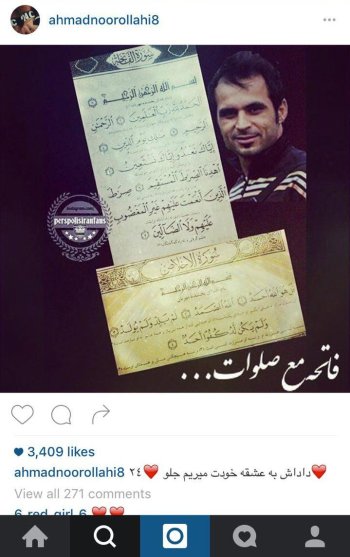 ahmadnoorollahi8
سورة الفاتحة
بسم الله الرحمن الرحيم
الحمد لله رب العلمين الرحمن
الرحيم ملك يوم الدين
اياك نعبد واياك نستعين
اهدنا الصراط المستقيم صراط
الذين انعمت عليهم غير المغضوب
عليهم ولا الضالين
perspolisiranfans
سورة الاخلاص
بسم الله الرحمن الرحيم
قل هو الله احد الله الصمد لم يلد ولم يولد
ولم يكن له كفوا احد
فاتحه مع صلوات...
3,409 likes
ahmadnoorollahi8 ❤داداش به عشقه خودت میریم جلو ❤٢٤
View all 271 comments
6_red_girl_6 ❤❤